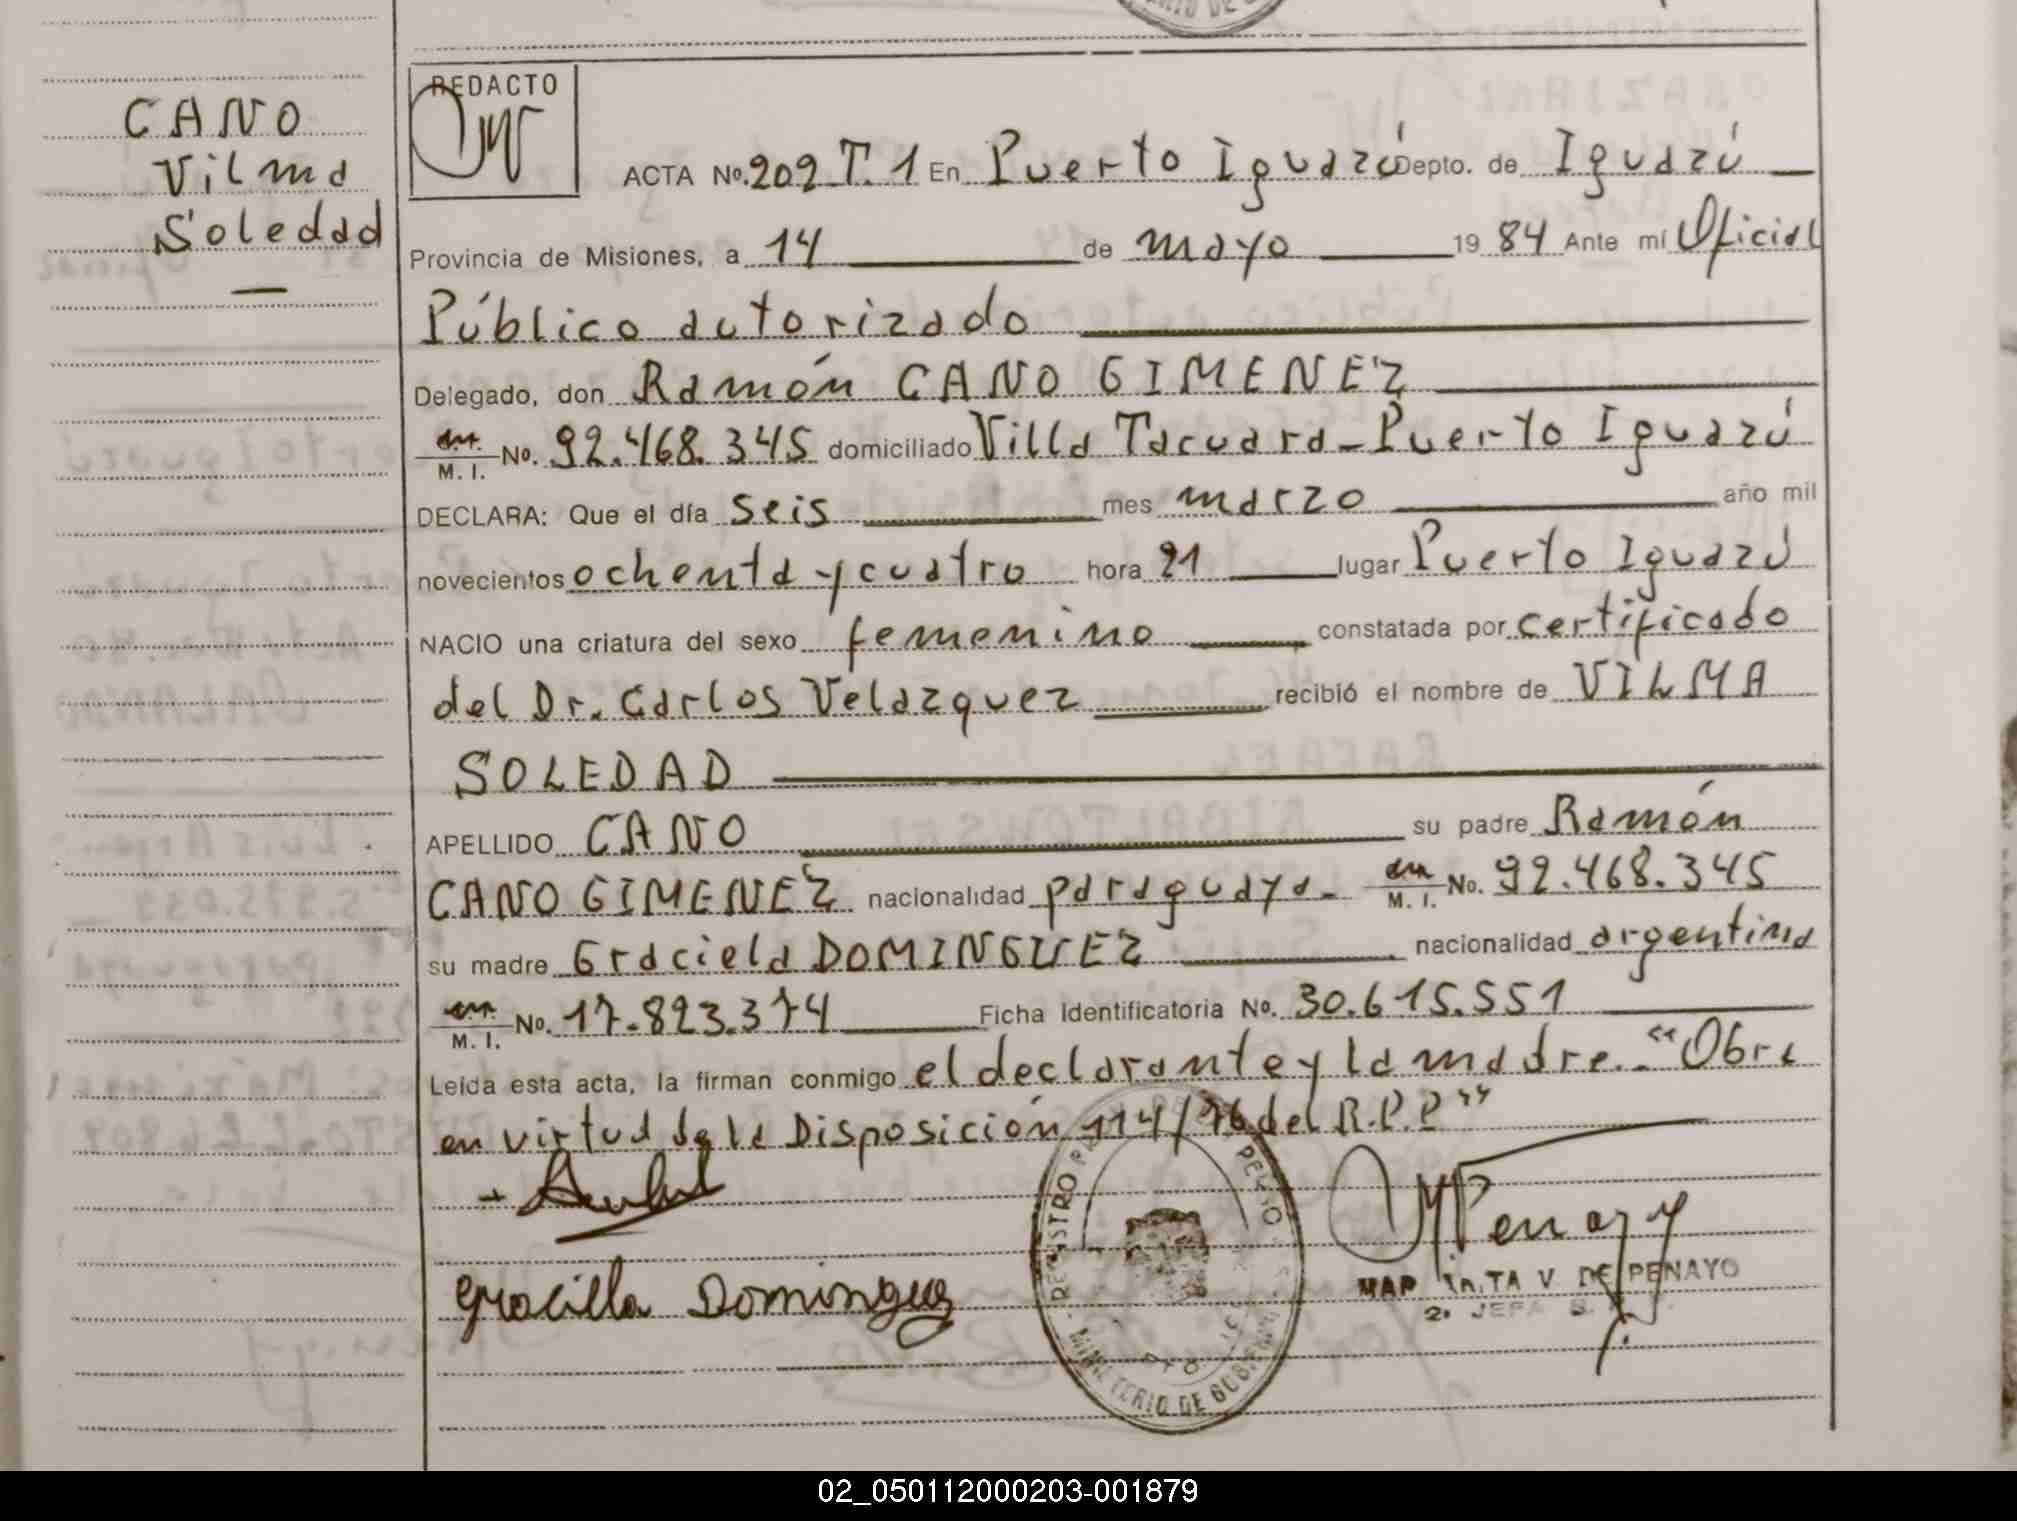 CANO
Vilma
Soledad
REDACTO
ACTA No. 202 T. 1 En Puerto Iguazú Depto. de Iguazú
Provincia de Misiones, a 14 de mayo 19 84 Ante mí Oficial
Público autorizado
Delegado, don Ramón CANO GIMENEZ
M. I. No. 92.468.345 domiciliado Villa Tacuara - Puerto Iguazú
DECLARA: Que el día seis mes marzo año mil
novecientos ochenta y cuatro hora 21 lugar Puerto Iguazú
NACIO una criatura del sexo femenino constatada por certificado
del Dr. Carlos Velazquez recibió el nombre de VILMA
SOLEDAD
APELLIDO CANO su padre Ramón
CANO GIMENEZ nacionalidad paraguaya - M. I. No. 92.468.345
su madre Graciela DOMINGUEZ nacionalidad argentina
M. I. No. 17.823.374 Ficha Identificatoria No. 30.615.551
Leída esta acta, la firman conmigo el declarante y la madre. - "Obra
en virtud de la Disposición 114/76 del R.P.P"
Graciella Dominguez
REGISTRO
MINISTERIO DE GOBIERNO
V. DE PENAYO
2º JEFA
02_050112000203-001879